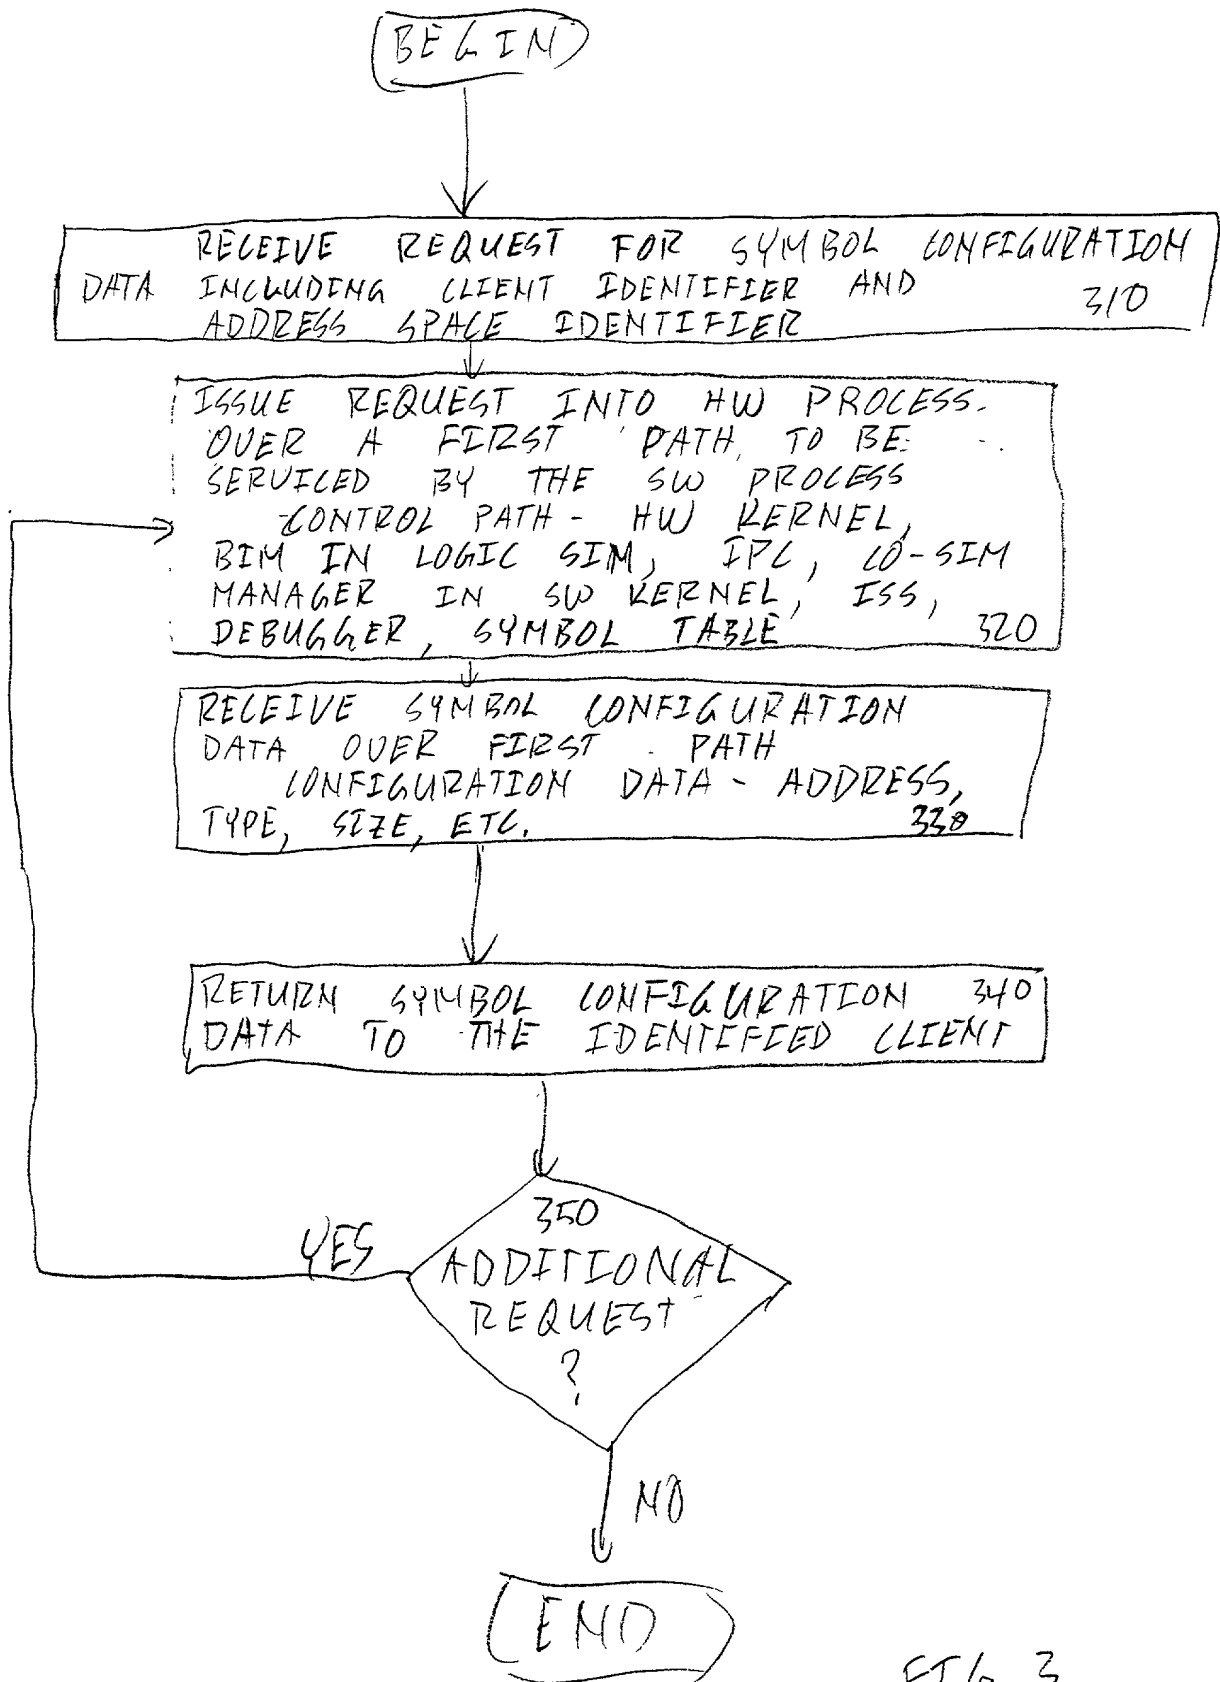 BEGIN
RECEIVE REQUEST FOR SYMBOL CONFIGURATION
DATA INCLUDING CLIENT IDENTIFIER AND 310
ADDRESS SPACE IDENTIFIER
ISSUE REQUEST INTO HW PROCESS
OVER A FIRST PATH, TO BE
SERVICED BY THE SW PROCESS
CONTROL PATH - HW KERNEL,
BIM IN LOGIC SIM, IPC, CO-SIM
MANAGER IN SW KERNEL, ISS,
DEBUGGER, SYMBOL TABLE 320
RECEIVE SYMBOL CONFIGURATION
DATA OVER FIRST PATH
CONFIGURATION DATA - ADDRESS,
TYPE, SIZE, ETC. 330
RETURN SYMBOL CONFIGURATION 340
DATA TO THE IDENTIFIED CLIENT
350
YES ADDITIONAL
REQUEST
?
NO
END
FIG 3